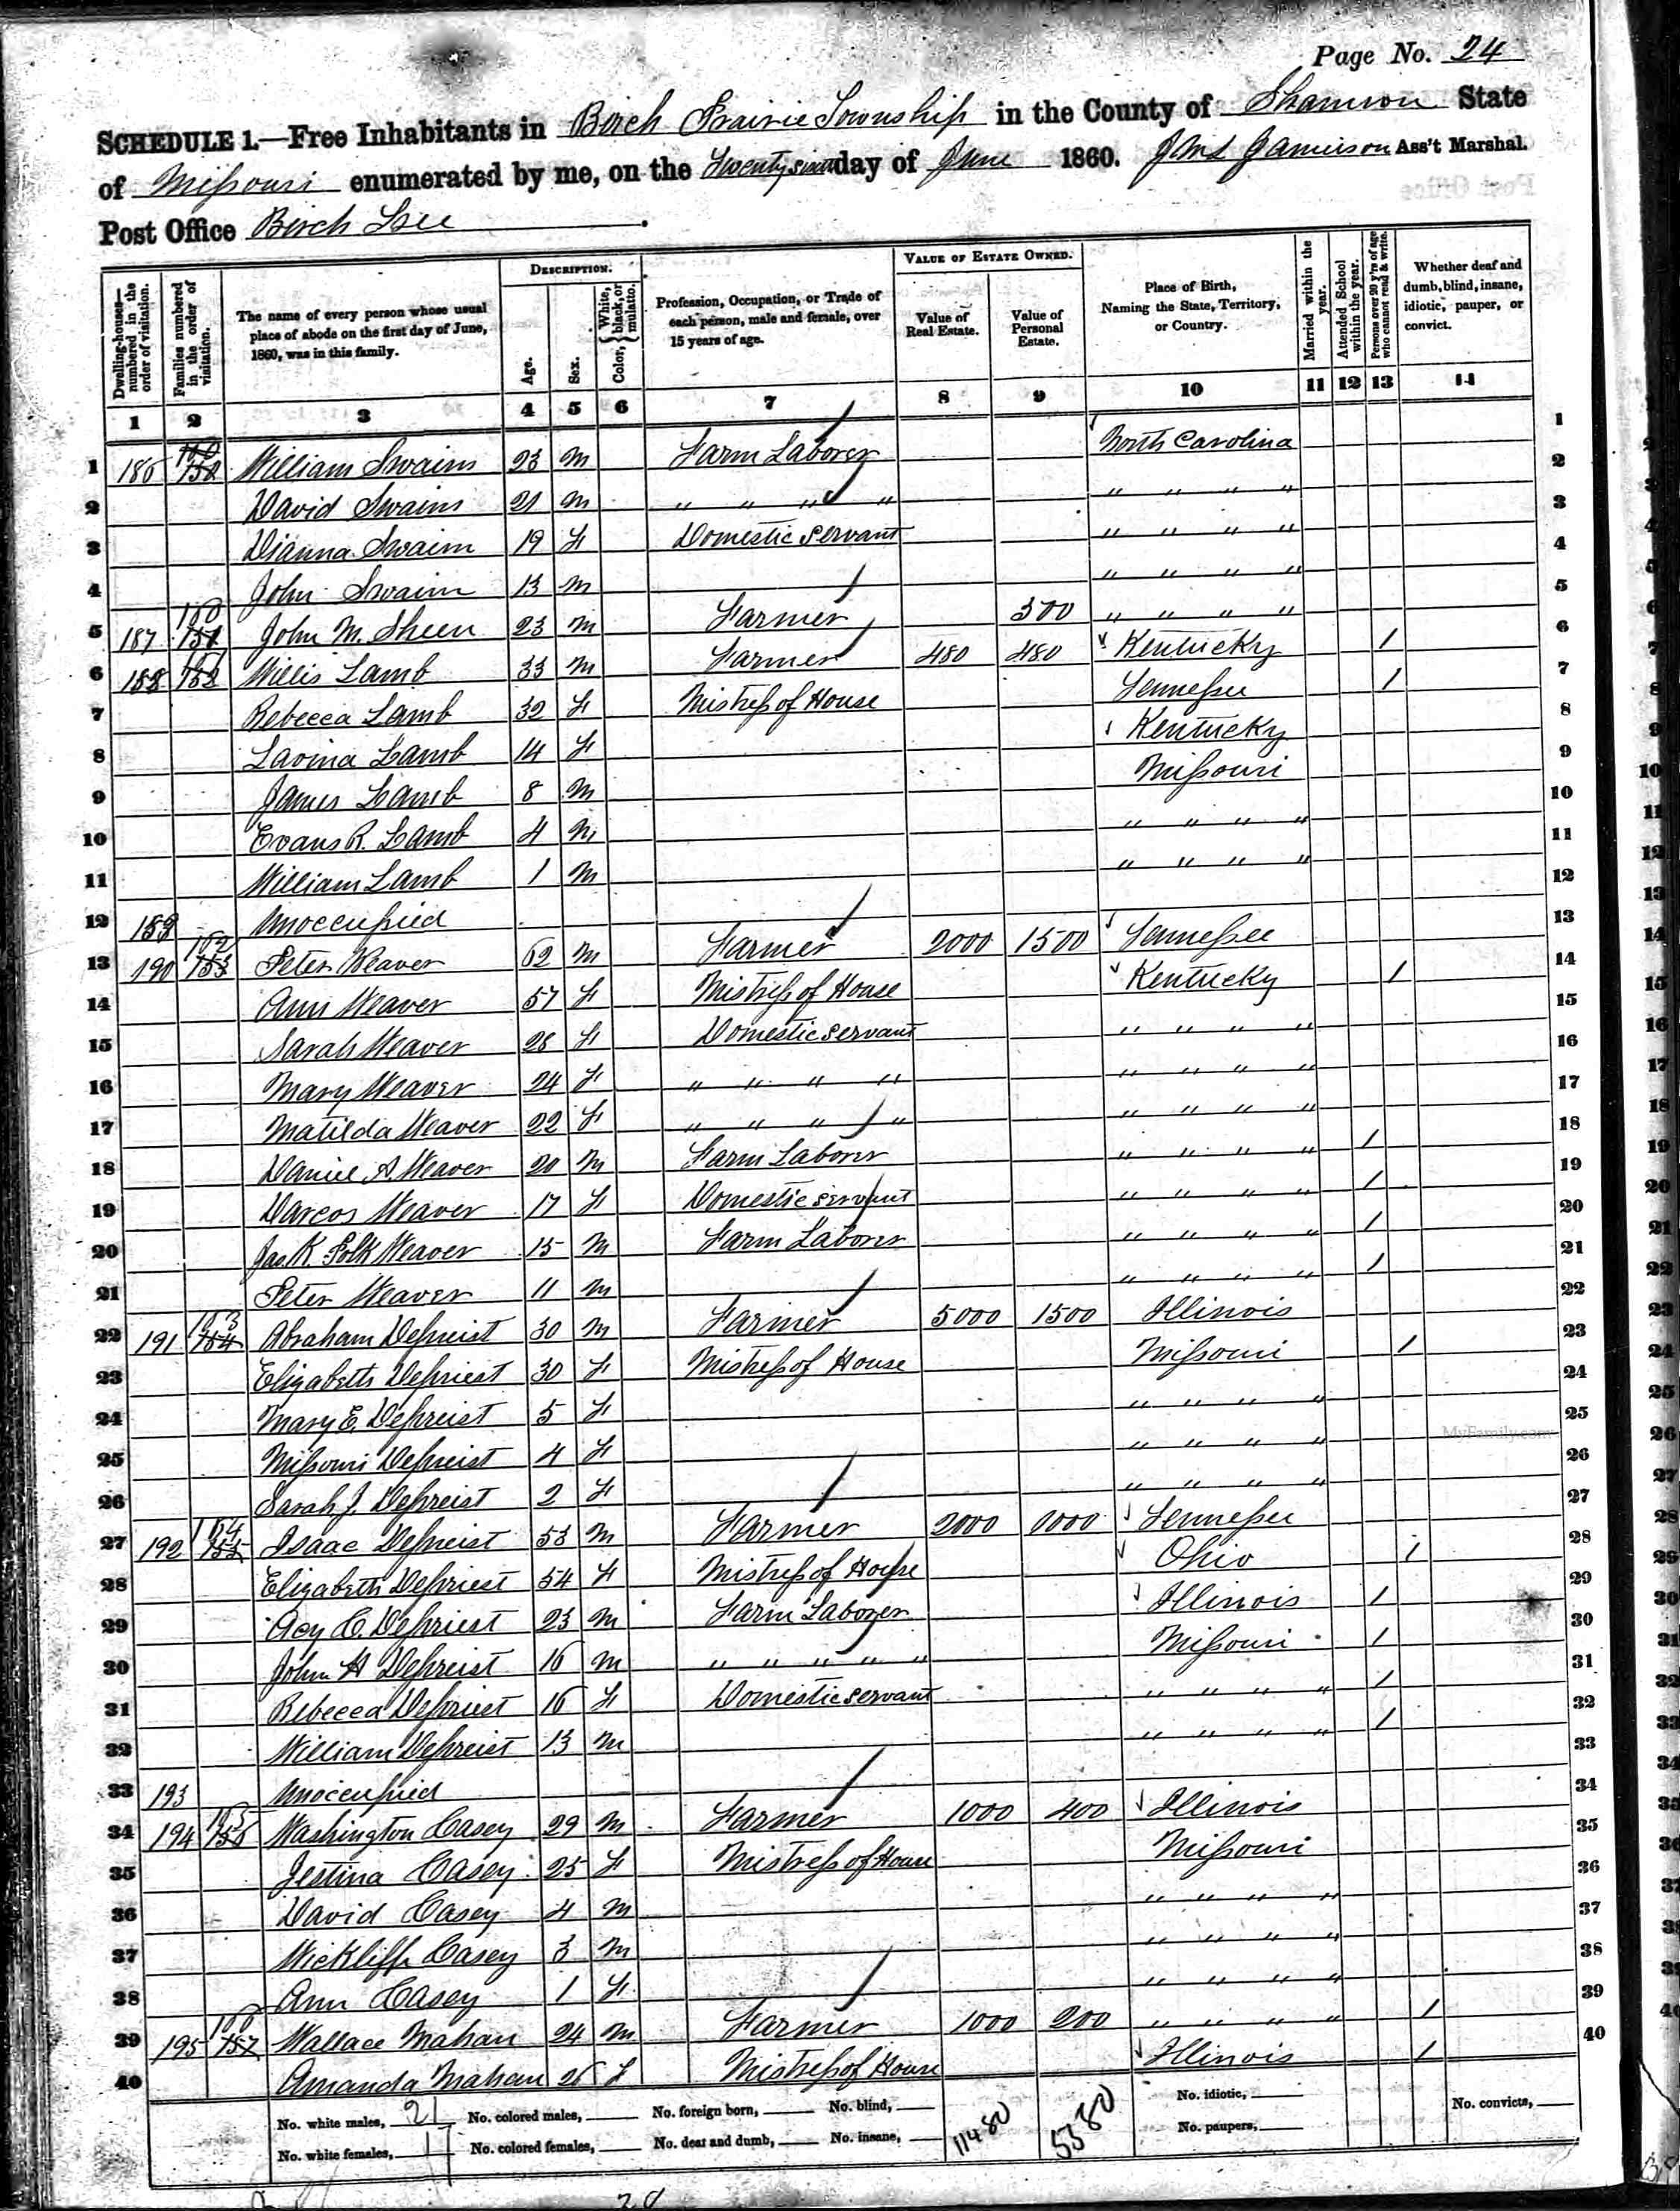 Page No. 24
SCHEDULE 1.—Free Inhabitants in Birch Prairie Township in the County of Shannon State
of Missouri enumerated by me, on the Twenty day of June 1860. Jamieson Ass't Marshal.
Post Office Birch Tree
Dwelling-houses—numbered in the order of visitation. Families numbered in the order of visitation. The name of every person whose usual place of abode on the first day of June, 1860, was in this family. DESCRIPTION. Age. Sex. Color, White, black, or mulatto. Profession, Occupation, or Trade of each person, male and female, over 15 years of age. VALUE OF ESTATE OWNED. Value of Real Estate. Value of Personal Estate. Place of Birth, Naming the State, Territory, or Country. Married within the year. Attended School within the year. Persons over 20 y'rs of age who cannot read & write. Whether deaf and dumb, blind, insane, idiotic, pauper, or convict.
1 2 3 4 5 6 7 8 9 10 11 12 13 14
1 186 William Swaim 23 M Farm Laborer North Carolina 1
2 David Swaim 21 M " " " " " " " " 2
3 Dianna Swaim 19 F Domestic Servant " " " " 3
4 John Swaim 13 M " " " " 4
5 187 160 John M. Sheen 23 M Farmer 300 " " " " 5
6 188 161 Willis Lamb 33 M Farmer 480 480 Kentucky / 6
7 Rebecca Lamb 32 F Mistress of House Tennessee / 7
8 Lavina Lamb 14 F Kentucky 8
9 James Lamb 8 M Missouri 9
10 Evans R. Lamb 4 M " " " " 10
11 William Lamb 1 M " " " " 11
12 189 Unoccupied 12
13 190 162 Peter Weaver 62 M Farmer 2000 1500 Tennessee 13
14 Ann Weaver 57 F Mistress of House Kentucky / 14
15 Sarah Weaver 28 F Domestic Servant " " " " 15
16 Mary Weaver 24 F " " " " " " " " 16
17 Matilda Weaver 22 F " " " " " " " " 17
18 Daniel A. Weaver 20 M Farm Laborer " " " " / 18
19 Darcos Weaver 17 F Domestic Servant " " " " / 19
20 Jas. K. Polk Weaver 15 M Farm Laborer " " " " / 20
21 Peter Weaver 11 M " " " " / 21
22 191 163 Abraham Depreist 30 M Farmer 5000 1500 Illinois 22
23 Elizabeth Depriest 30 F Mistress of House Missouri / 23
24 Mary E. Depreist 5 F " " " " 24
25 Missouri Depreist 4 F " " " " 25
26 Sarah J. Depreist 2 F " " " " 26
27 192 164 Isaac Depreist 53 M Farmer 2000 1000 Tennessee 27
28 Elizabeth Depriest 54 F Mistress of House Ohio / 28
29 Acy C. Depriest 23 M Farm Laborer Illinois / 29
30 John H Depreist 16 M " " " " " Missouri / 30
31 Rebecca Depriest 16 F Domestic Servant " " " " / 31
32 William Depreist 13 M " " " " / 32
33 193 Unoccupied 33
34 194 165 Washington Casey 29 M Farmer 1000 400 Illinois 34
35 Jestina Casey 25 F Mistress of House Missouri 35
36 David Casey 4 M " " " " 36
37 Wickliffe Casey 3 M " " " " 37
38 Ann Casey 1 F " " " " 38
39 195 166 Wallace Mahan 24 M Farmer 1000 200 " " " " / 39
40 Amanda Mahan 26 F Mistress of House Illinois / 40
MyFamily.com
No. white males, 21 No. colored males, No. foreign born, No. blind, 11480 5380 No. idiotic, No. convicts,
No. white females, 17 No. colored females, No. deaf and dumb, No. insane, No. paupers,